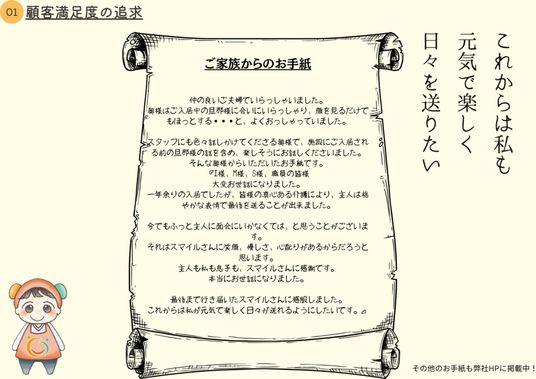 01 顧客満足度の追求
これからは私も
元気で楽しく
日々を送りたい
ご家族からのお手紙
仲の良いご夫婦でいらっしゃいました。
奥様はご入居中の旦那様に会いにいらっしゃり、顔を見るだけで
もほっとする・・・と、よくおっしゃっていました。
スタッフにも色々話しかけてくださる奥様で、施設にご入居され
る前の旦那様の話を含め、楽しそうにお話しくださいました。
そんな奥様からいただいたお手紙です。
M様、S様、職員の皆様
大変お世話になりました。
一年余りの入居でしたが、皆様の真心ある介護により、主人は穏
やかな表情で最後を送ることが出来ました。
今でもふっと主人に面会にいかなくては、と思うことがございま
す。
それはスマイルさんに笑顔、優しさ、心配りがあるからだろうと
思います。
主人も私も息子も、スマイルさんに感謝です。
本当にお世話になりました。
最後まで行き届いたスマイルさんに感服しました。
これからは私が元気で楽しく日々が送れるようにしたいです。
その他のお手紙も弊社HPに掲載中！